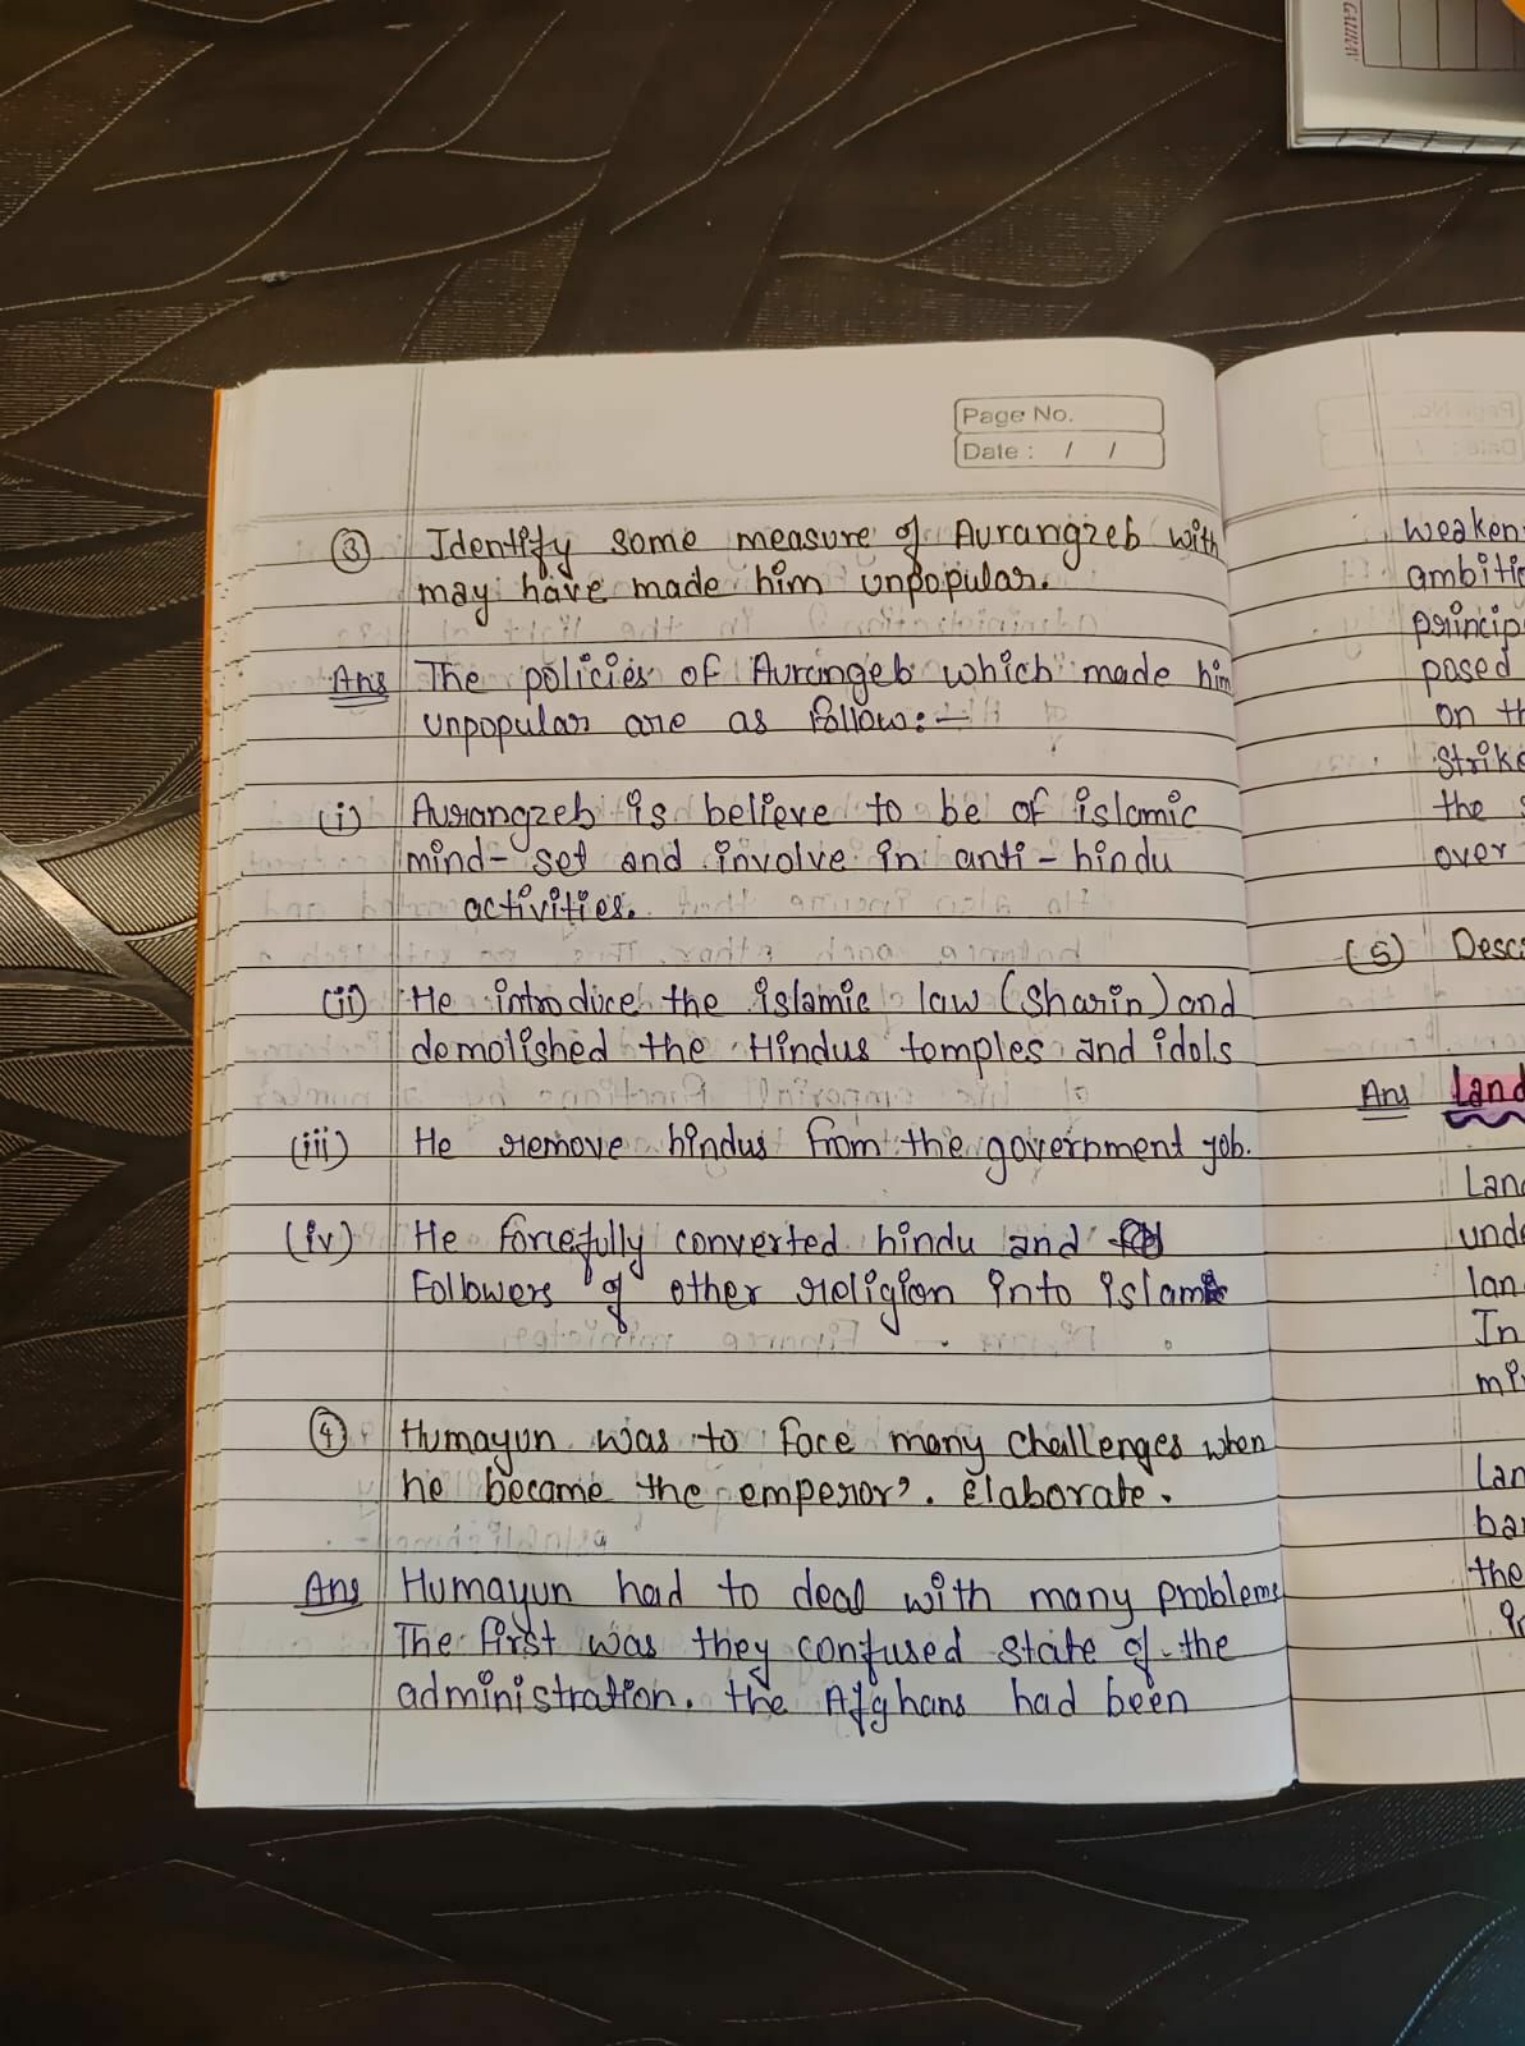 GAURAV
Page No.
Date : / /
③ Identify some measure of Aurangzeb with
may have made him unpopular.
Ans The policies of Aurangeb which made him
unpopular are as follow:-
(i) Aurangzeb is believe to be of islamic
mind-set and involve in anti-hindu
activities.
(ii) He introduce the islamic law (sharin) and
demolished the Hindus temples and idols
(iii) He remove hindus from the government job.
(iv) He forcefully converted hindu and
Followers of other religion into islam
④ Humayun was to face many challenges when
he became the emperor'. Elaborate.
Ans Humayun had to deal with many problems
The first was they confused state of the
administration. the Afghans had been
weaken
ambitio
princip
posed
on th
strike
the s
over
(5) Desc
Ans Land
Lan
unde
lan
In
mi
Lan
bar
the
in